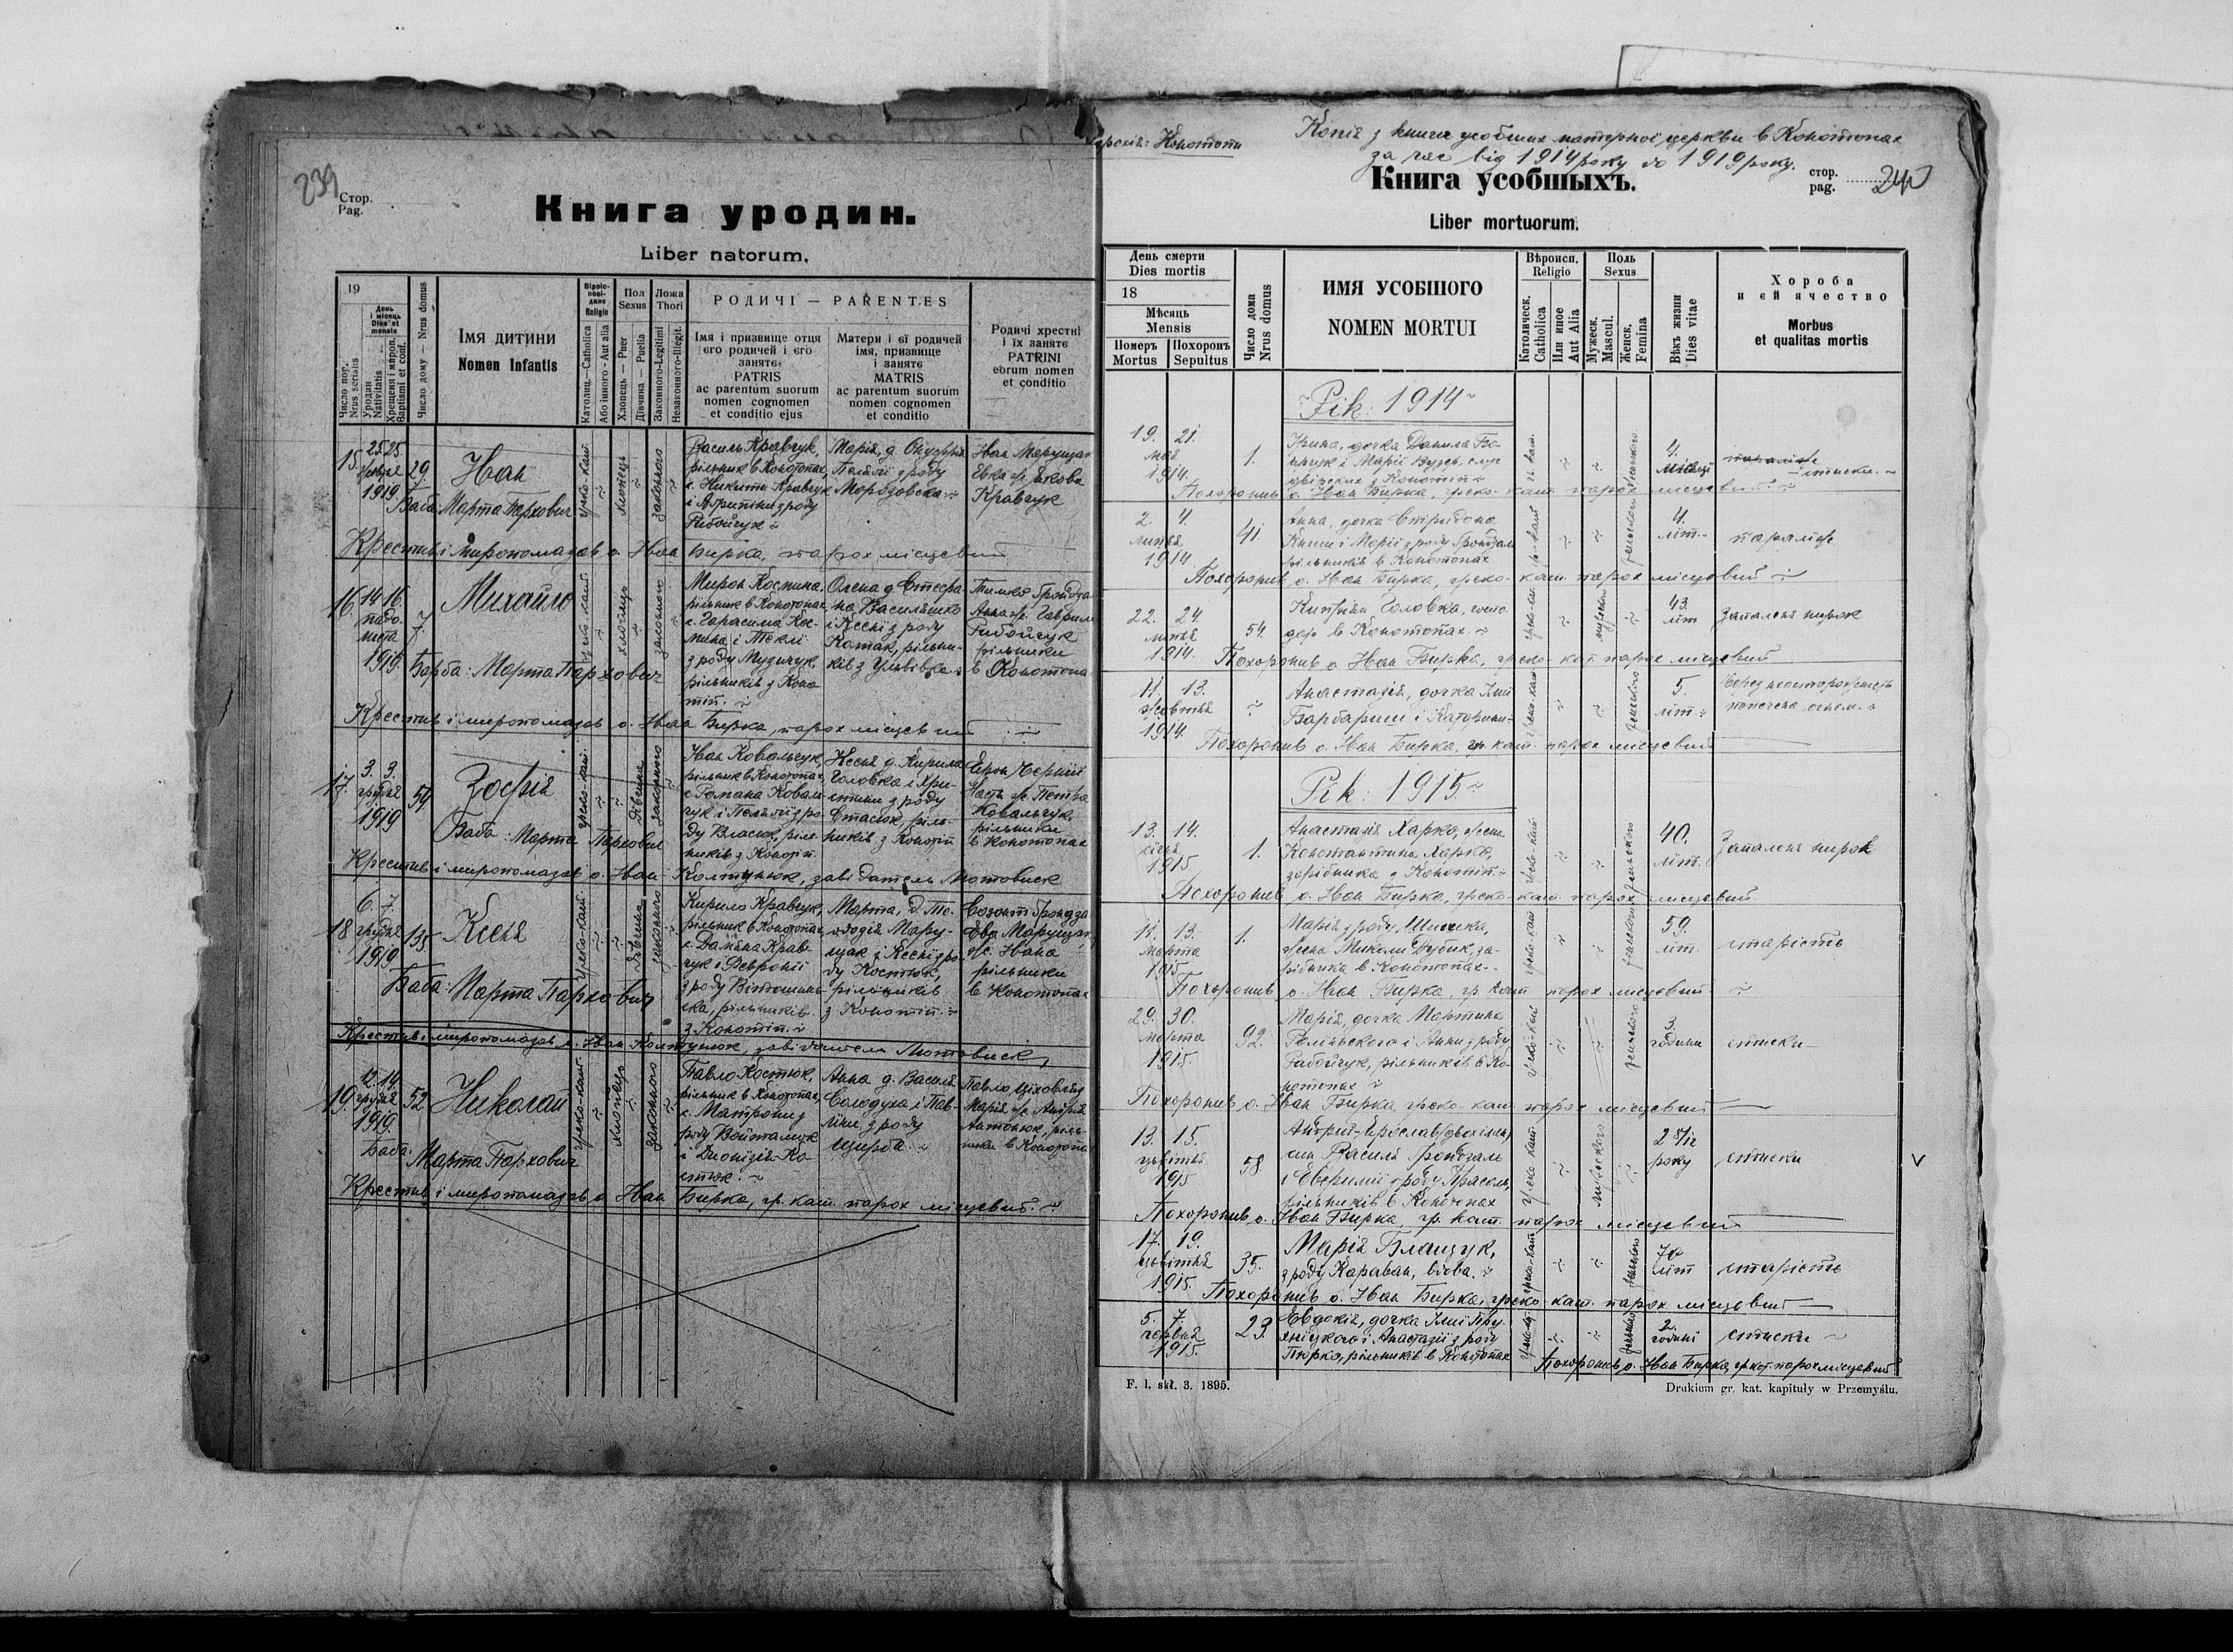 239
Стор.
Pag.
Книга уродин.
Liber natorum.
19
Число пор.
Nrus serialis
День і місяць
Dies et mensis
Уродин
Nativitatis
Хрещеня і миропом.
Baptismi et conf.
Число дому — Nrus domus
Імя дитини
Nomen Infantis
Віроісповідане
Religio
Католиц.—Catholica
Або інного - Aut alia
Пол
Sexus
Хлопець — Puer
Дівчина — Puella
Ложа
Thori
Законного-Legitimi
Незаконного-Illegit.
РОДИЧІ — PARENTES
Імя і призвище отця
єго родичей і єго
занятє
PATRIS
ac parentum suorum
nomen cognomen
et conditio ejus
Матери і єї родичей
імя, призвище
і занятє
MATRIS
ac parentum suorum
nomen cognomen
et conditio
Родичі хрестні
і їх занятє
PATRINI
eorum nomen
et conditio
15.
25. 25.
1919
29.
Иван
Баба: Марта Пархович
греко-кат.
хлопець
законного
Василь Кравчук,
рільник в Конотопах,
с. Никити Кравчук
і Агрипіни з роду
Рибойчук
Марія, д. Онуфрія
з роду
Морозовска
Иван Марущак
Евка ж. Якова
Кравчук
Крестив і миропомазав о. Иван Бирка, парох місцевий
16
14. 16.
падолиста
1919.
7.
Михайло
Баба: Марта Пархович
греко-кат.
хлопець
законного
Мирон Костина,
рільник в Конотопах
с. Гарасима Костина, і Теклі
з роду Музичук,
рільників з Конотіп.
Олена д. Стефана Василишко
і Ксені з роду
Котак, рільників з Ульвівка
Тимко Грондза
Анна ж. Гаврила
Рибойчук
рільники
в Конотопа
Крестив і миропомазав о. Иван Бирка, парох місцевий
17.
3. 3.
грудня
1919
54
Зофія
Баба: Марта Пархович
греко-кат.
дівчина
законного
Иван Ковальчук,
рільник в Конотопах,
с. Романа Ковальчук і Пелагії з роду Власюк, рільників з Конотіп.
Ксеня д. Кирила
Головка і Христини з роду
Стасюк, рільників з Конотіп
Ерон Черній
Настя ж. Петра
Ковальчук,
рільники
в Конотопах
Крестив і миропомазав о. Иван Колтунюк, завідатель Мотовиск
18
6. 7.
грудня
1919
135
Ксеня
Баба: Марта Пархович
греко-кат.
дівчина
законного
Кирило Кравчук,
рільник в Конотопах,
с. Даміяна Кравчук і Февронії
з роду
рільників
з Конотіп.
Марта, д. Теодозія Марущак і Ксені з роду Костюк,
рільників
з Конотіп.
Созонт Грондза
Ева Марущак
ж. Ивана
рільники
в Конотопах
Крестив і миропомазав о. Иван Колтунюк, завідатель Мотовиск,
19.
12. 14.
грудня
1919.
52
Николай
Баба: Марта Пархович
греко-кат.
хлопець
законного
Павло Костюк,
рільник в Конотопах,
с. Матрони з
роду Войталюк
і Дионізія Костюк.
Анна д. Василя
Солодуха і Павліни, з роду
Щирба
Павло Ціховляд
Марія ж. Андрія
Антонюк, рільники в Конотопах
Крестив і миропомазав о. Иван Бирка, гр. кат. парох місцевий.
Парохія: Конотопи
Копія з книги усобших матерної церкви в Конотопах
за час від 1914 року до 1919 року.
Книга усобшыхъ.
стор.
pag.
240
Liber mortuorum.
День смерти
Dies mortis
18
Мѣсяць
Mensis
Померъ
Mortus
Похоронъ
Sepultus
Число дома
Nrus domus
ИМЯ УСОБШОГО
NOMEN MORTUI
Вѣроисп.
Religio
Католическ.
Catholica
Или иное
Aut Alia
Поль
Sexus
Мужеск.
Mascul.
Женск.
Femina
Вѣкъ жизни
Dies vitae
Хороба
и ей ячество
Morbus
et qualitas mortis
Рік: 1914
19. 21.
мая
1914.
1.
Ирина, дочка Данила
і Марії
з Конотіп
4.
місяці
стиски.
Похоронив о. Иван Бирка, греко-кат. парох місцевий.
2. 4.
липня
1914
41.
Анна, дочка Спиридона
Книш і Марії з роду Грондзаль
рільників в Конотопах
4.
літ.
параліж
Похоронив о. Иван Бирка, греко-кат. парох місцевий
22. 24.
липня
1914.
54.
Кипріян Головка, господар в Конотопах.
43.
літ
Запаленя нирок
Похоронив о. Иван Бирка, греко-кат. парох місцевий
11. 13.
жовтня
1914.
Анастазія, дочка Илії
Барбариш і Катерини
5.
літ.
Через неосторожність
попечена огнем.
Похоронив о. Иван Бирка, гр. кат. парох місцевий
Рік: 1915
13. 14.
січня
1915
1.
Анастазія Харко, жена
Константина Харко,
зарібника з Конотіп.
40.
літ.
Запаленя нирок
Похоронив о. Иван Бирка, греко-кат. парох місцевий
11. 13.
марта
1915
1.
Марія з роду Шишка,
жена Миколи Дубик, зарібника в Конотопах.
59.
літ.
старість
Похоронив о. Иван Бирка, гр. кат. парох місцевий.
29. 30.
марта
1915
92.
Марія, дочка Мартина
і Анни з роду
Рибойчук, рільників в Конотопах
3
години
стиски
Похоронив о. Иван Бирка, греко-кат. парох місцевий
13. 15.
цьвітня
1915
58.
Андрій-Ярослав (двох імен)
син Василя Грондзаль
і Евфимії з роду Прасоль,
рільників в Конотопах
2 8/12
року
стиски
Похоронив о. Иван Бирка, гр. кат. парох місцевий
17. 19.
цьвітня
1915.
35.
Марія Блащук,
з роду Караван, вдова.
70
літ
старість
Похоронив о. Иван Бирка, греко-кат. парох місцевий
5. 7.
червня
1915.
23.
Евдокія, дочка Илії
і Анастазії з роду
Тюрко, рільників в Конотопах
2.
години
стиски
Похоронив о. Иван Бирка, гр. кат. парох місцевий.
F. l. skł. 3. 1895.
Drukiem gr. kat. kapituły w Przemyślu.